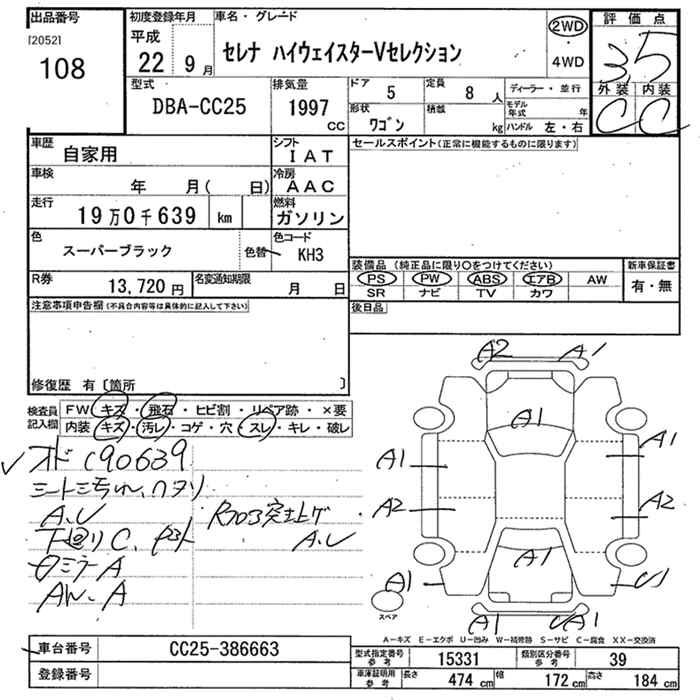 出品番号
[2052]
108
初度登録年月
平成
22 9月
車名・グレード
セレナ ハイウェイスターVセレクション
2WD
・
4WD
評価点
3,5
外装 内装
C C
型式
DBA-CC25
排気量
1997
CC
ドア
5
定員
8人
形状
ワゴン
積載
kg
ディーラー・並行
モデル年式 年
ハンドル 左・右
車歴
自家用
シフト
IAT
車検
年 月( 日)
冷房
AAC
走行
19万0千639 km
燃料
ガソリン
色
スーパーブラック
色替
色コード
KH3
R券
13,720円
名変通知期限
月 日
セールスポイント(正常に機能するものに限ります)
装備品 (純正品に限り○をつけてください)
PS PW ABS エアB AW
SR ナビ TV カワ
新車保証書
有・無
後日品
注意事項申告欄(不具合内容等は具体的に記入して下さい)
修復歴 有 [箇所 ]
検査員記入欄
FW キズ・飛石・ヒビ割・リペア跡・×要
内装 キズ・汚レ・コゲ・穴・スレ・キレ・破レ
190639
A.U
下廻りC
A.U
ミラーA
AW.A
A2 A1
A1
A1 A1
A2 A2
A1
A1 U1
A1 UA1
スペア
A-キズ E-エクボ U-凹み W-補修跡 S-サビ C-腐食 XX-交換済
車台番号
CC25-386663
登録番号
型式指定番号
参考
15331
類別区分番号
参考
39
車庫証明用
参考
長さ
474cm
幅
172cm
高さ
184cm